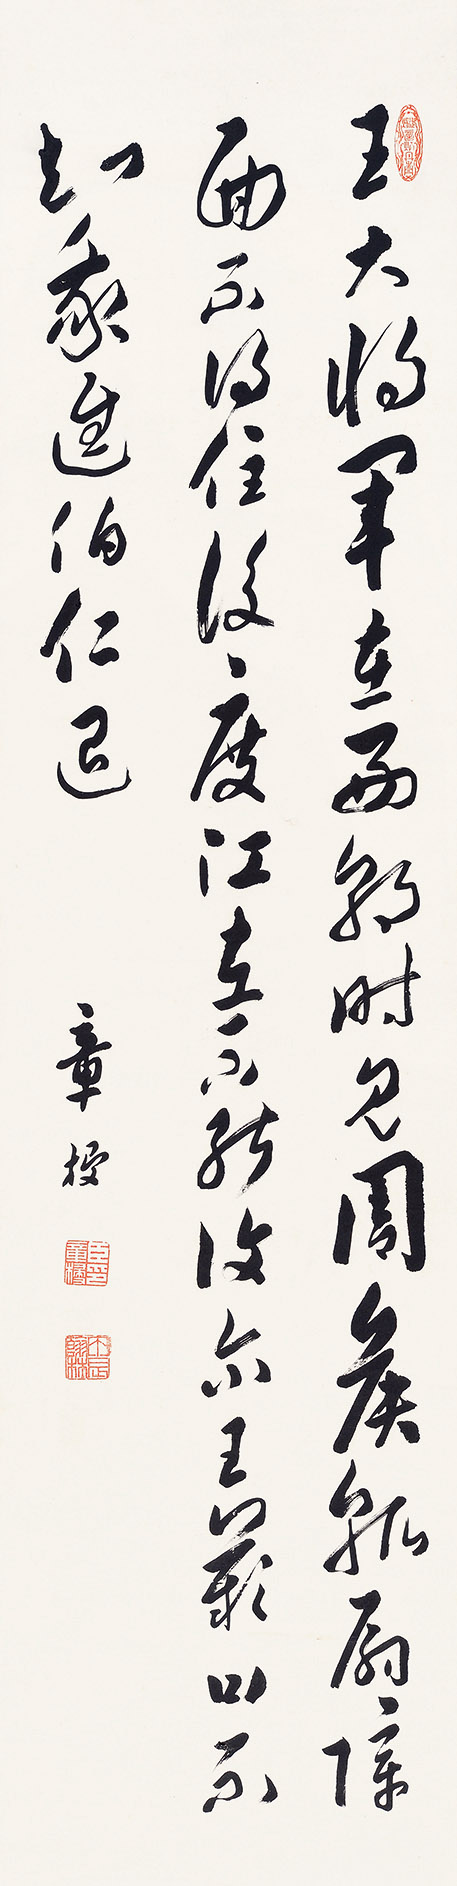 王大將軍在西朝時見周侯輒扇障
面不得住後度江左不能復爾王歎曰不
知我進伯仁退
章梫